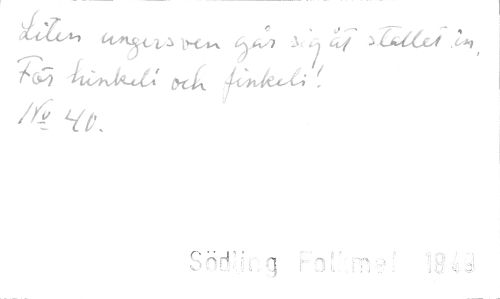 Liten ungersven går sig åt stallet in,
För hinkeli och finkeli!
No 40.
Södling Folkmel 1843